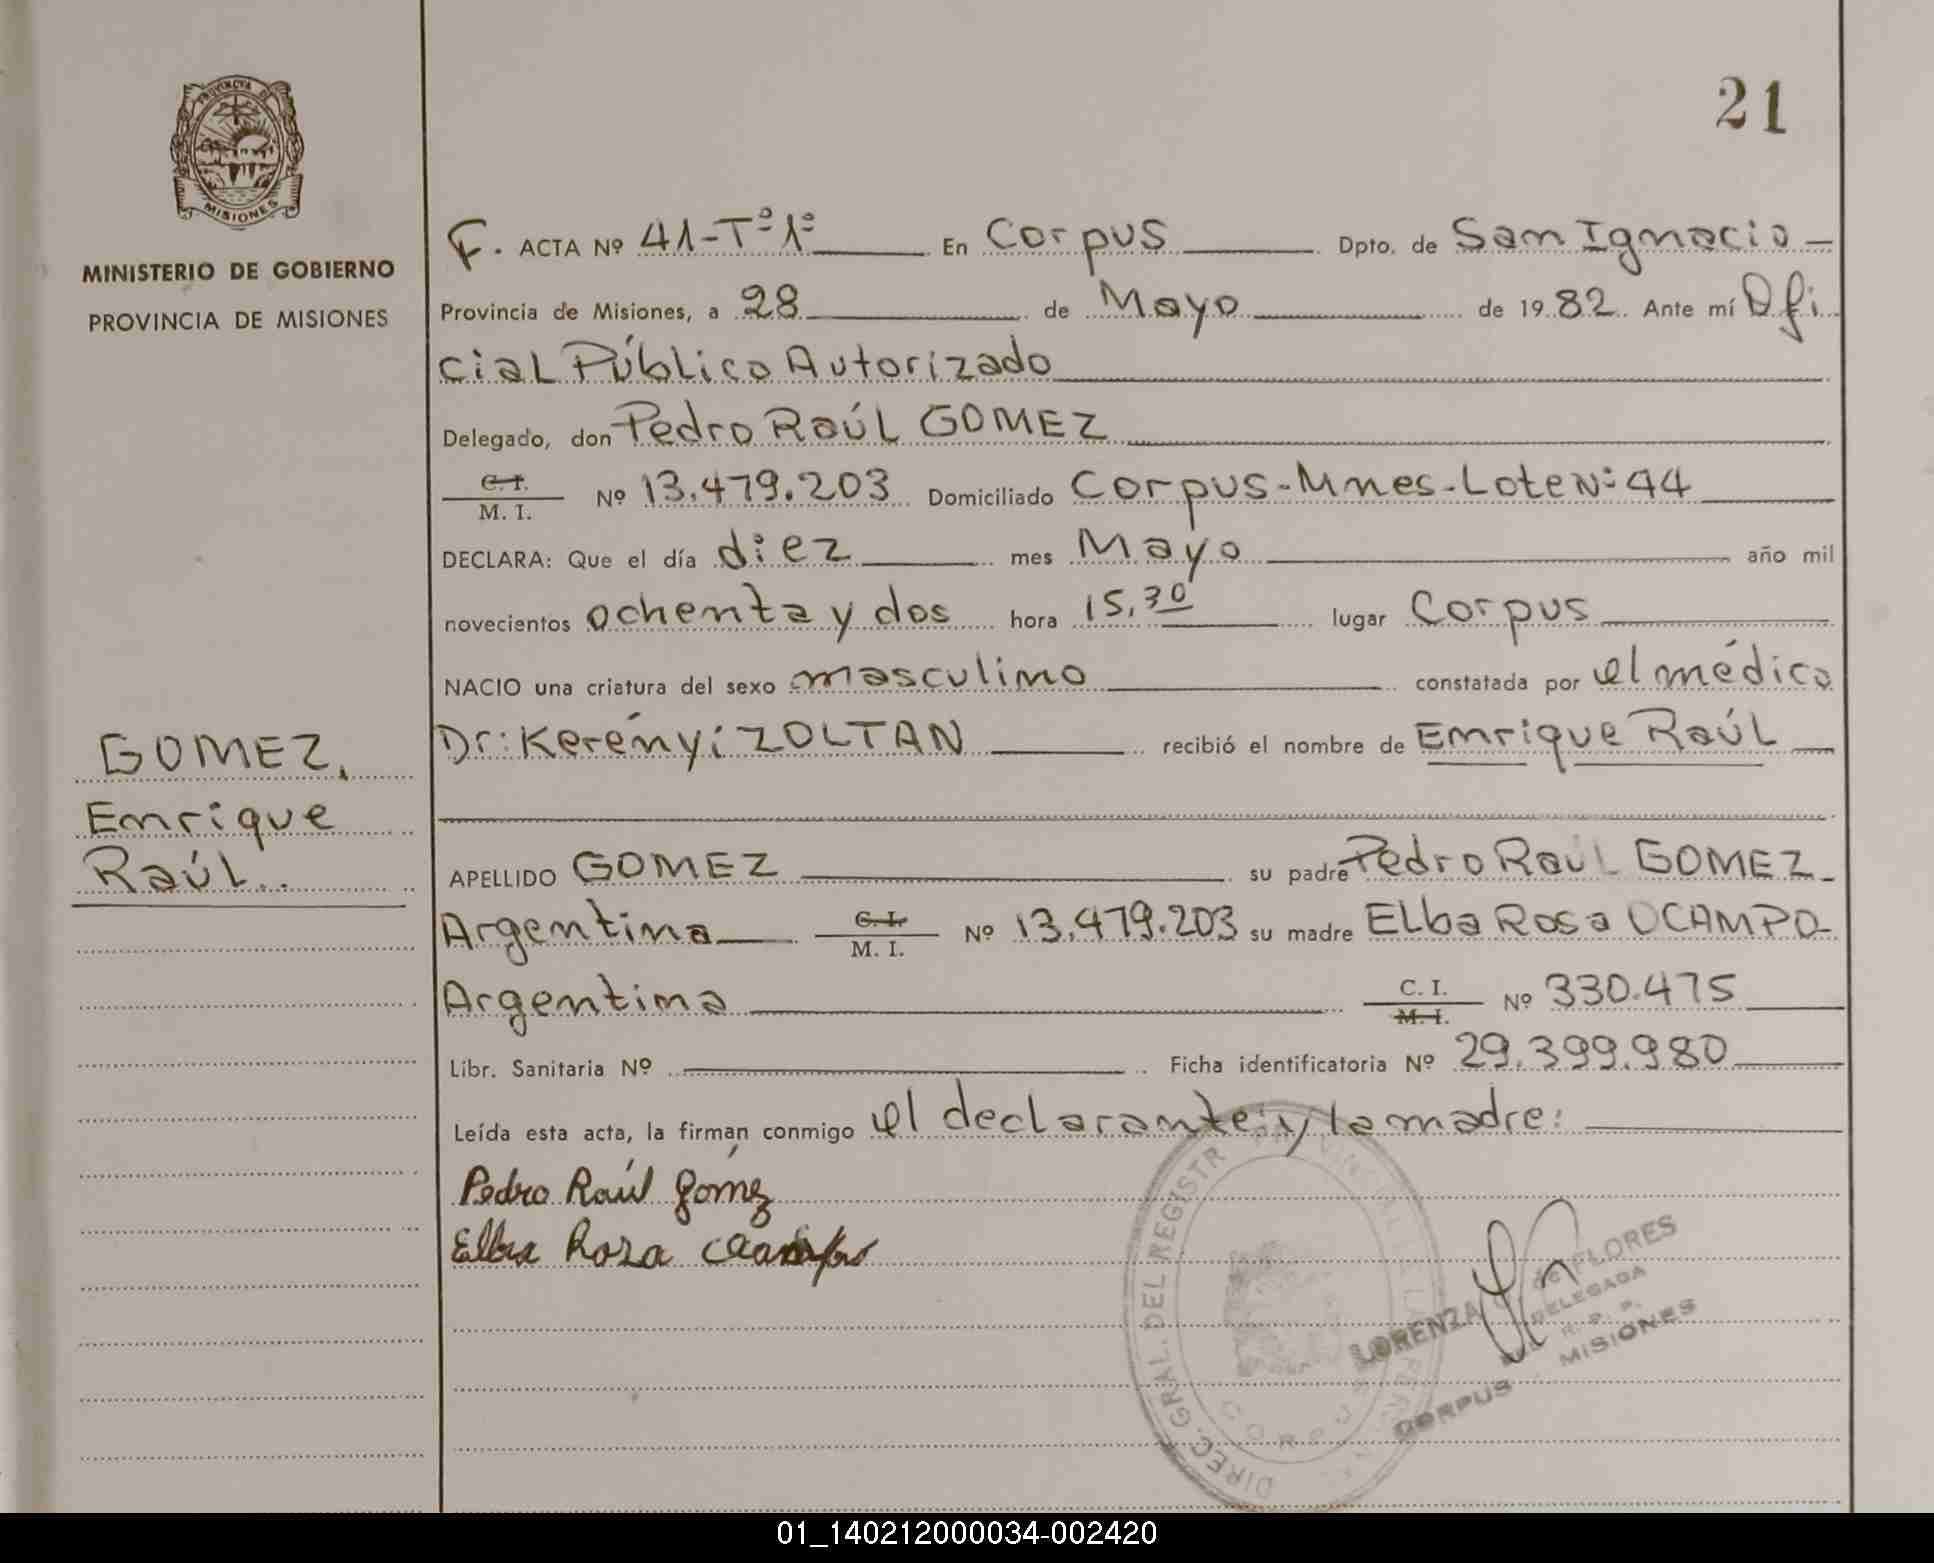 21
PROVINCIA DE
MISIONES
MINISTERIO DE GOBIERNO
PROVINCIA DE MISIONES
GOMEZ,
Enrique
Raúl..
F. ACTA Nº 41-Tº1º En Corpus Dpto. de San Ignacio
Provincia de Misiones, a 28 de Mayo de 1982. Ante mí Ofi
cial Público Autorizado
Delegado, don Pedro Raúl GOMEZ
C. I.
M. I. Nº 13.479.203 Domiciliado Corpus-Mnes-Lote Nº 44
DECLARA: Que el día diez mes Mayo año mil
novecientos ochenta y dos hora 15,30 lugar Corpus
NACIO una criatura del sexo masculino constatada por el médico
Dr: Kerényi ZOLTAN recibió el nombre de Enrique Raúl
APELLIDO GOMEZ su padre Pedro Raúl GOMEZ
Argentina C. I. M. I. Nº 13.479.203 su madre Elba Rosa OCAMPO
Argentina C. I. M. I. Nº 330.475
Libr. Sanitaria Nº Ficha identificatoria Nº 29.399.980
Leída esta acta, la firman conmigo el declarante y la madre:
Pedro Raúl Gómez
Elba Rosa Ocampo
DIREC. GRAL. DEL REGISTR PROVINCIAL DE LA
CORPUS
LORENZA de FLORES
DELEGADA
R. P. P.
CORPUS MISIONES
01_140212000034-002420